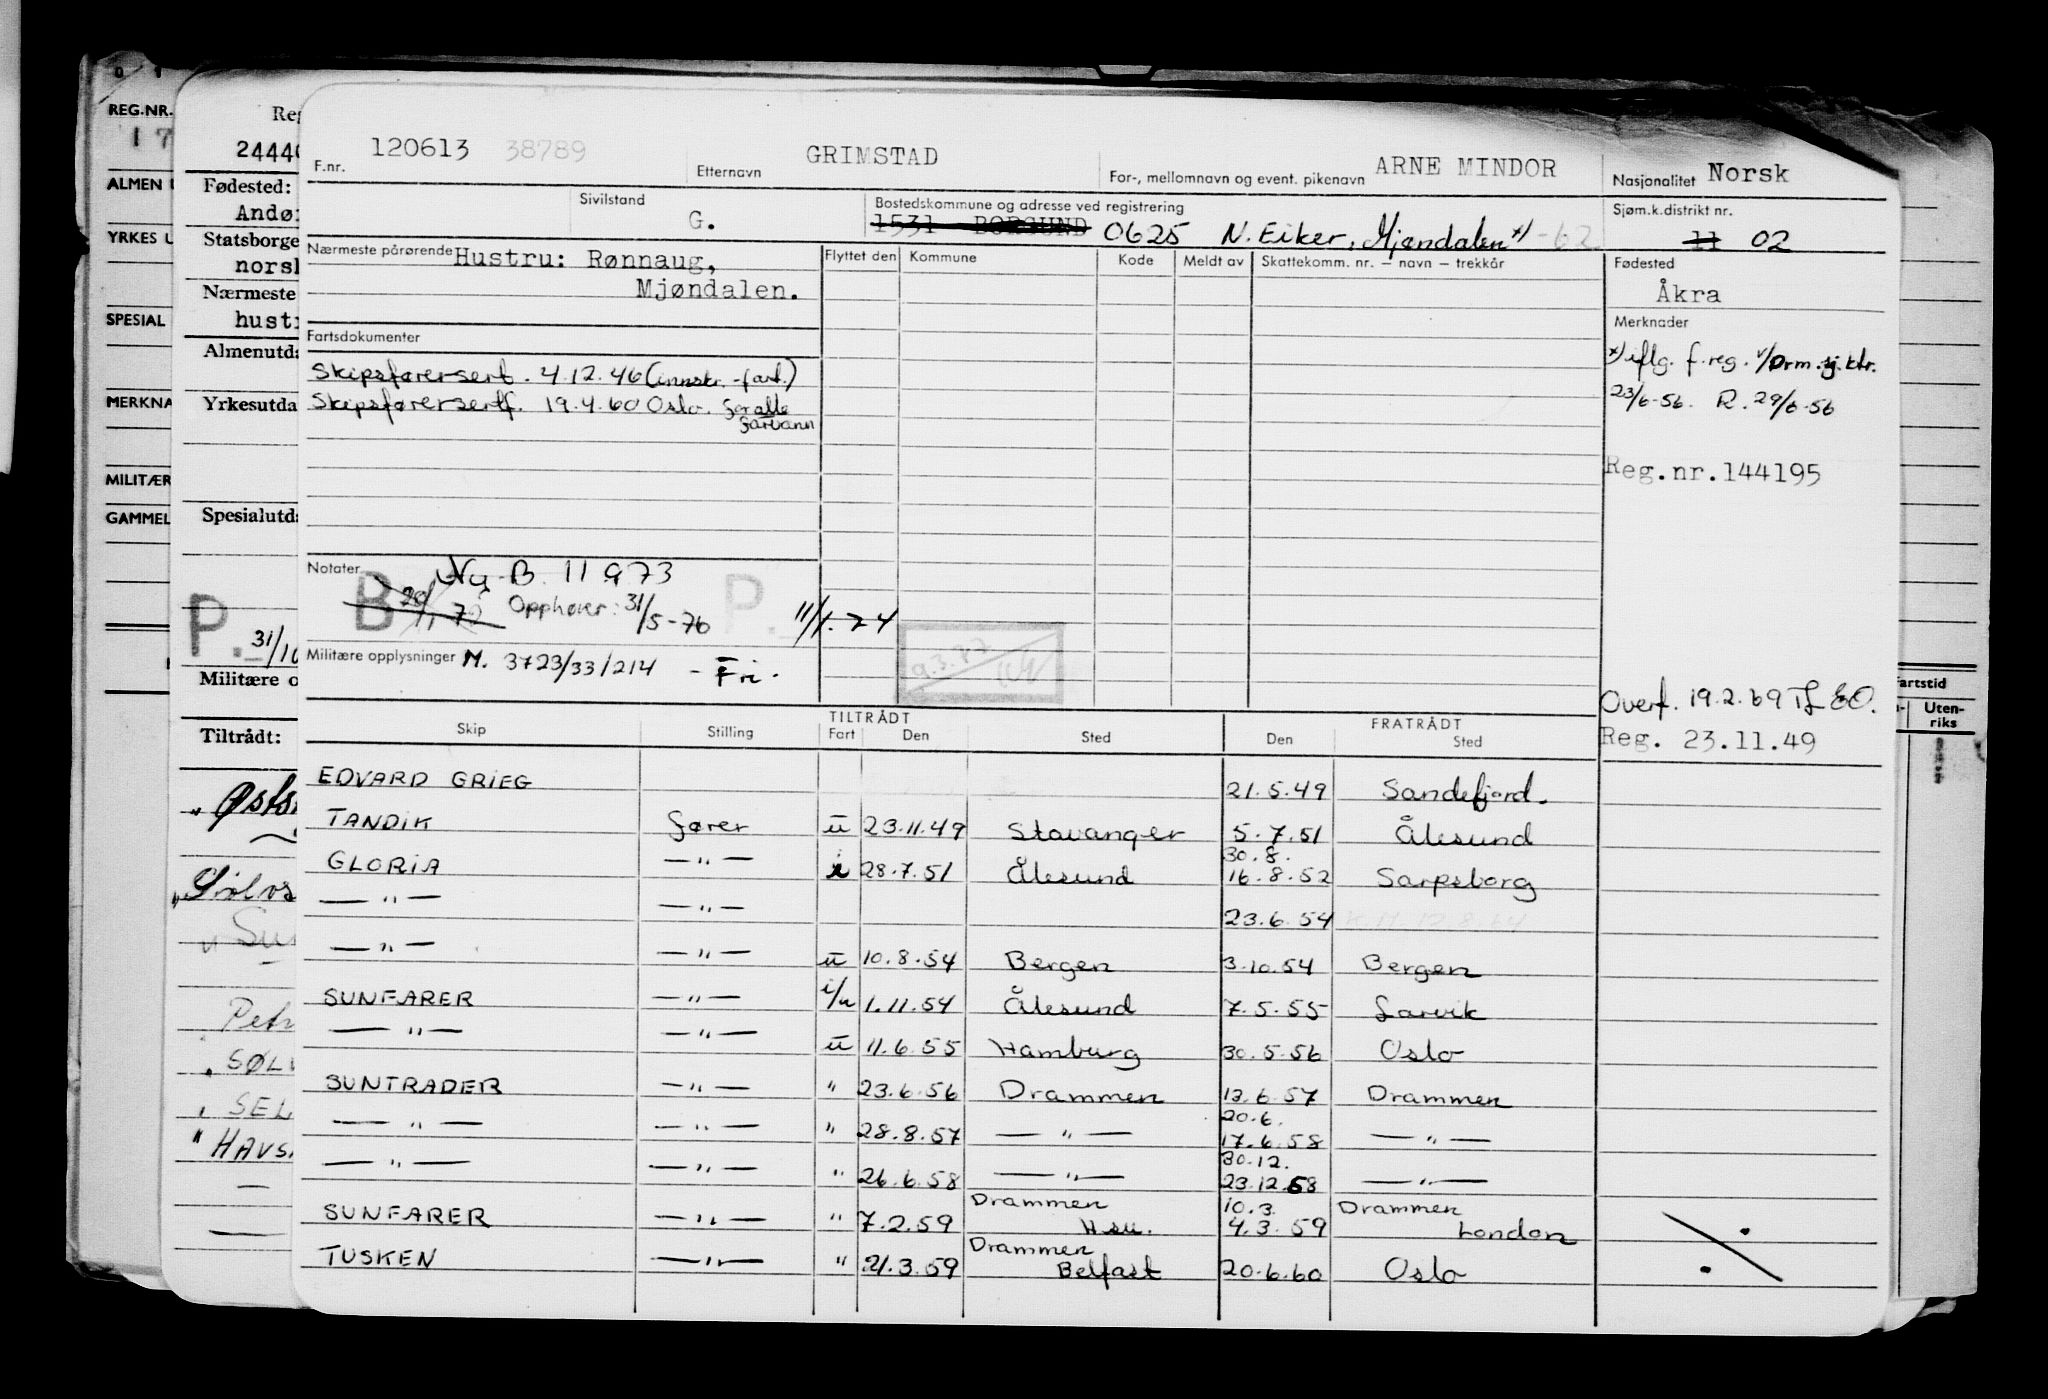 REG.NR.
17
ALMEN U
YRKES U
SPESIAL
MERKNA
MILITÆR
GAMMEL
Reg
24440
Fødested:
Andø
Statsborge
norsk
Nærmeste
hustr
Almenutda
Yrkesutda
Spesialutda
P. 31/10
Militære o
Tiltrådt:
" Østs
" Sølvs
" Sun
Petr
SØLV
SEL
" HAVS
F.nr. 120613 38789 Etternavn GRIMSTAD For-, mellomnavn og event. pikenavn ARNE MINDOR Nasjonalitet Norsk
Sivilstand G. Bostedskommune og adresse ved registrering 1531 BORGUND 0625 N. Eiker, Mjøndalen x) -62. Sjøm.k.distrikt nr. 11 02
Nærmeste pårørende Hustru: Rønnaug,
Mjøndalen.
Flyttet den Kommune Kode Meldt av Skattekomm. nr. – navn – trekkår
Fødested
Åkra
Merknader
x) iflg. f. reg. v/Drm. sj. ktr.
23/6-56. R. 29/6-56
Reg.nr.144195
Overf. 19.2.69
Reg. 23.11.49
Fartsdokumenter
Skipsførersert. 4.12.46 (innskr.-fart.)
Skipsførersertf. 19.4.60 Oslo. for alle
farvann
Notater Ny B. 11 9 73
B 20/11 72 Opphører: 31/5-76 P. 11/1.74
9.3.77
Militære opplysninger M. 3723/33/214 - Fri.
Skip Stilling TILTRÅDT Fart Den Sted FRATRÅDT Den Sted
EDVARD GRIEG 21.5.49 Sandefjord.
TANDIK fører u 23.11.49 Stavanger 5.7.51 Ålesund
GLORIA —"— i 28.7.51 Ålesund 30.8. 16.8.52 Sarpsborg
—"— —"— 23.6.54 K.H. 12.8.64
—"— —"— u 10.8.54 Bergen 3.10.54 Bergen
SUNFARER —"— i/u 1.11.54 Ålesund 7.5.55 Larvik
—"— —"— u 11.6.55 Hamburg 30.5.56 Oslo
SUNTRADER —"— " 23.6.56 Drammen 13.6.57 Drammen
—"— —"— " 28.8.57 —"— 20.6. 17.6.58 —"—
—"— —"— " 26.6.58 —"— 30.12. 23.12.58 —"—
SUNFARER —"— " 7.2.59 Drammen 10.3. 4.3.59 Drammen London
TUSKEN —"— " 21.3.59 Drammen Belfast 20.6.60 Oslo
Fartstid
Uten-
riks